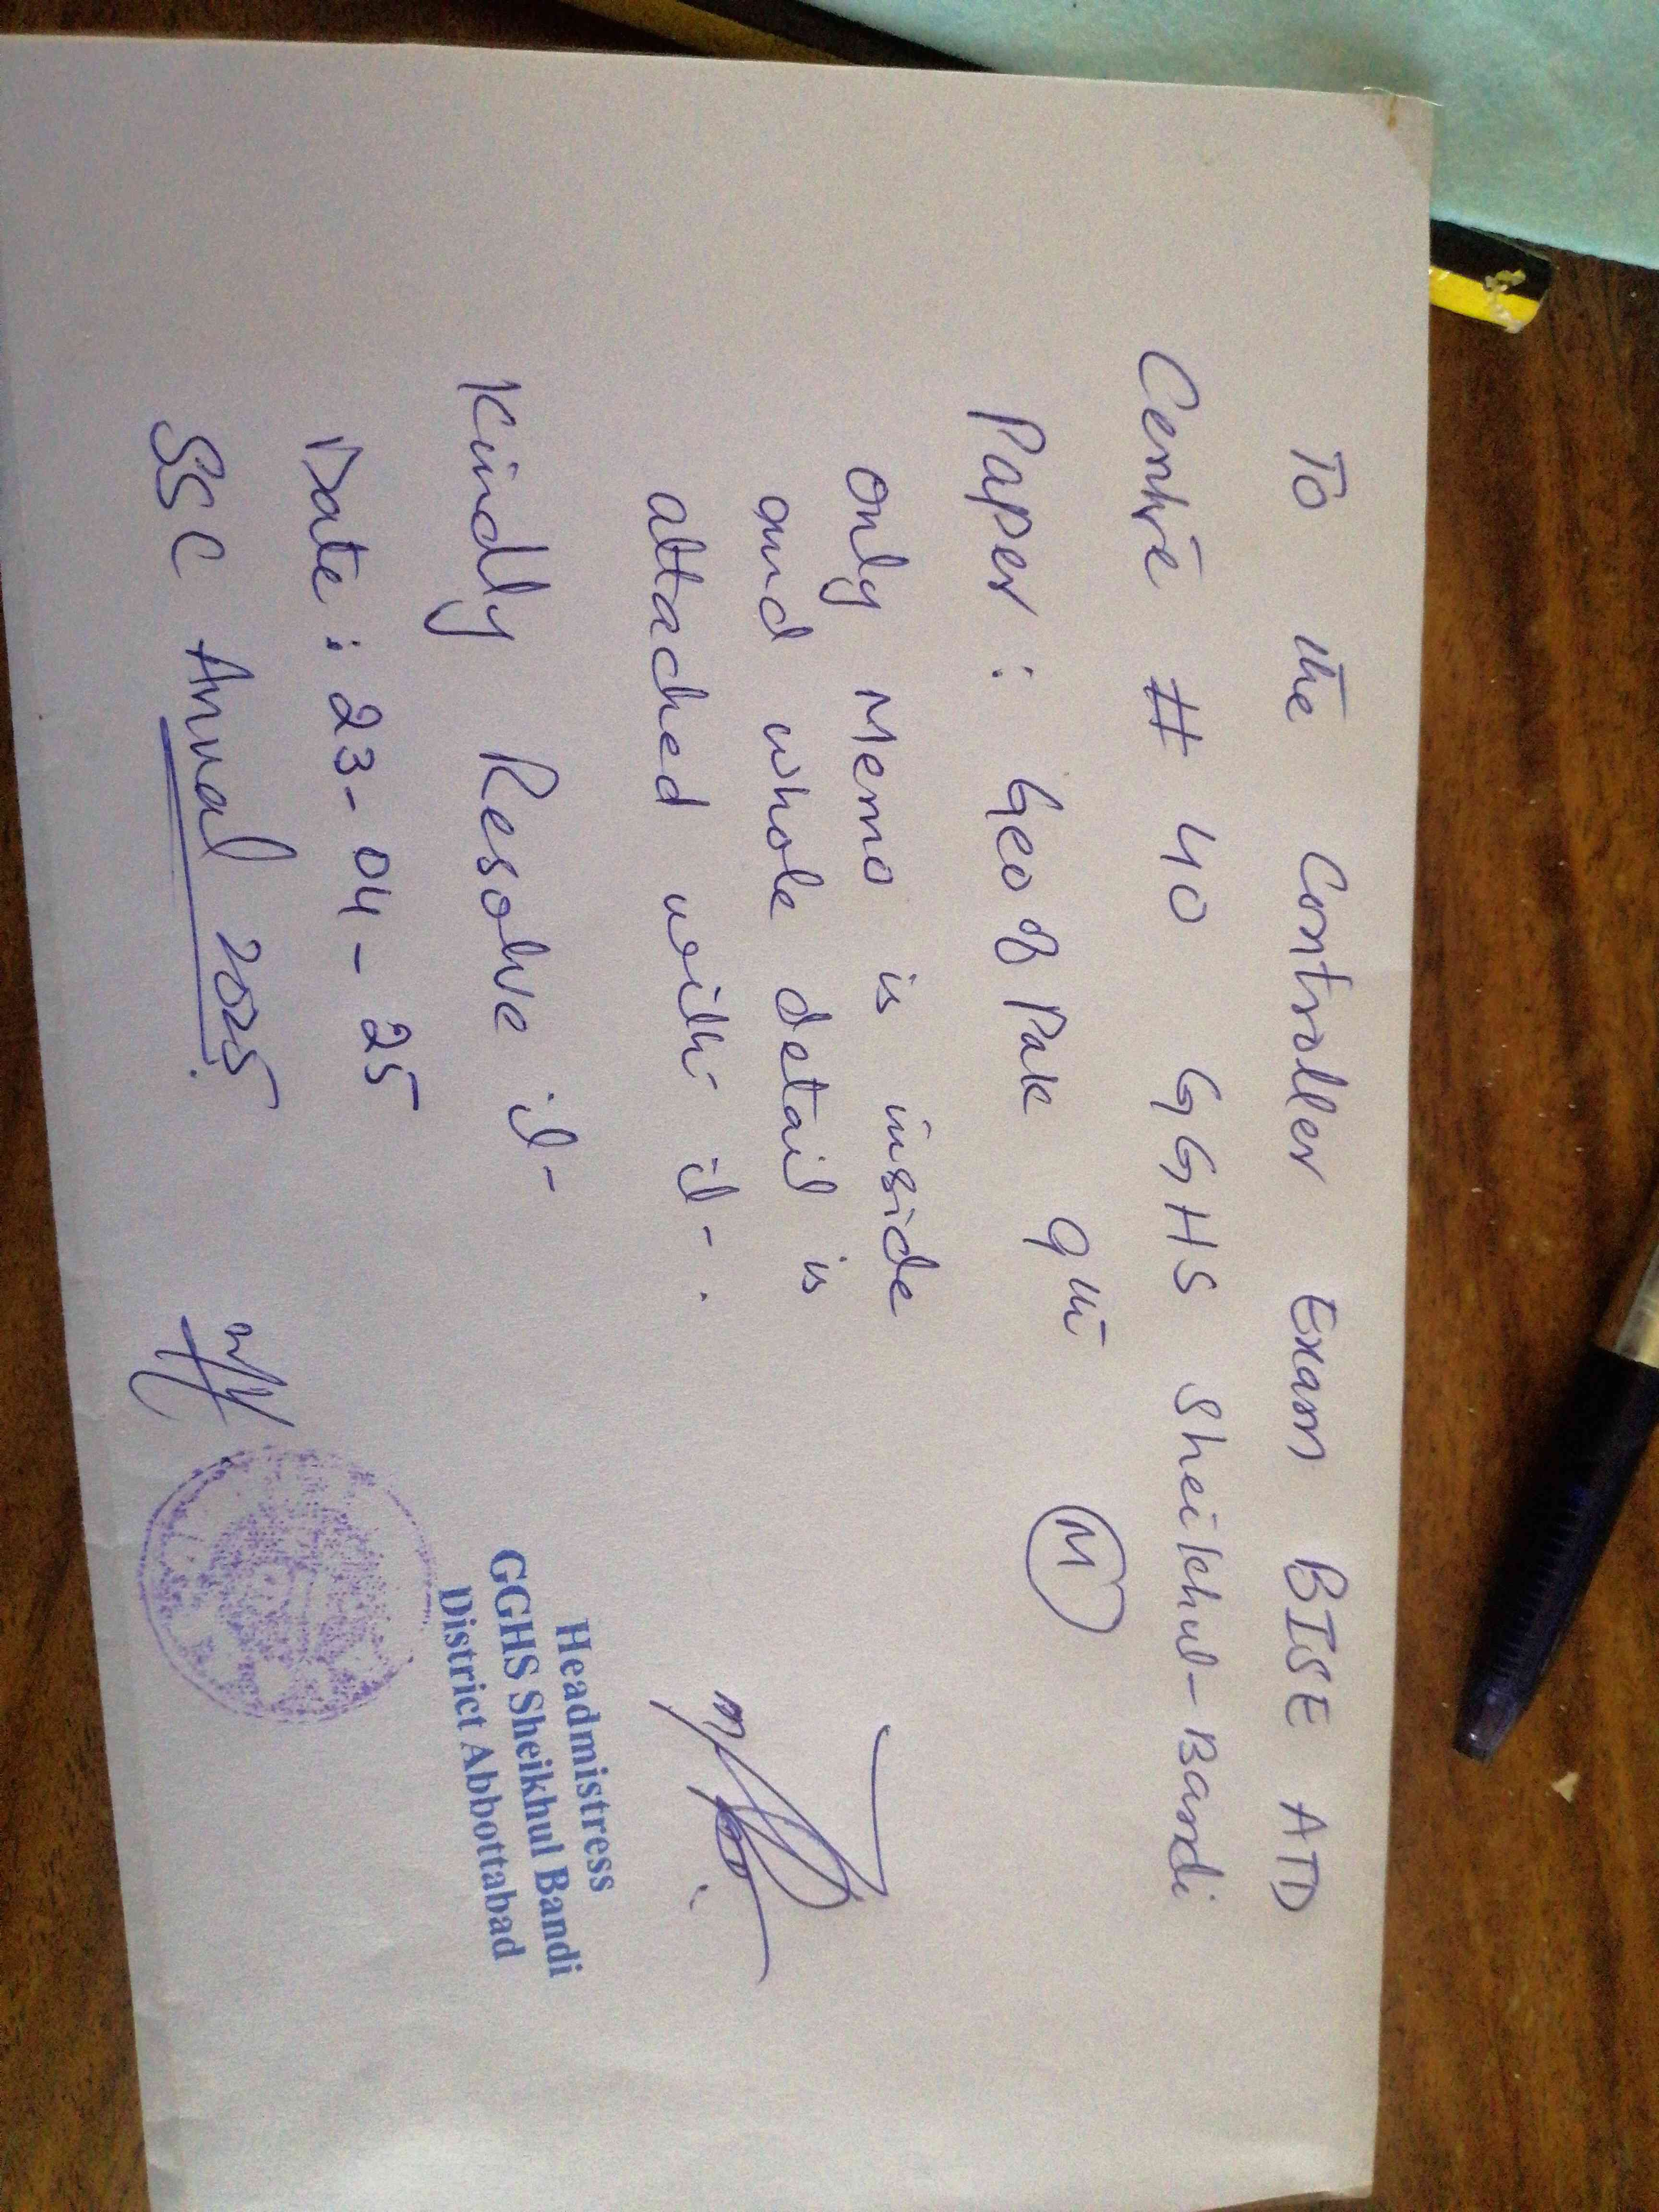 To the Controller Exam BISE ATD
Centre # 40 GGHS Sheikhul-Bandi
Paper : Geo of Pak 9th M
only Memo is inside
and whole detail is
attached with it-.
Kindly Resolve it-
Date : 23-04-25
SSC Annual 2025.
Headmistress
GGHS Sheikhul Bandi
District Abbottabad